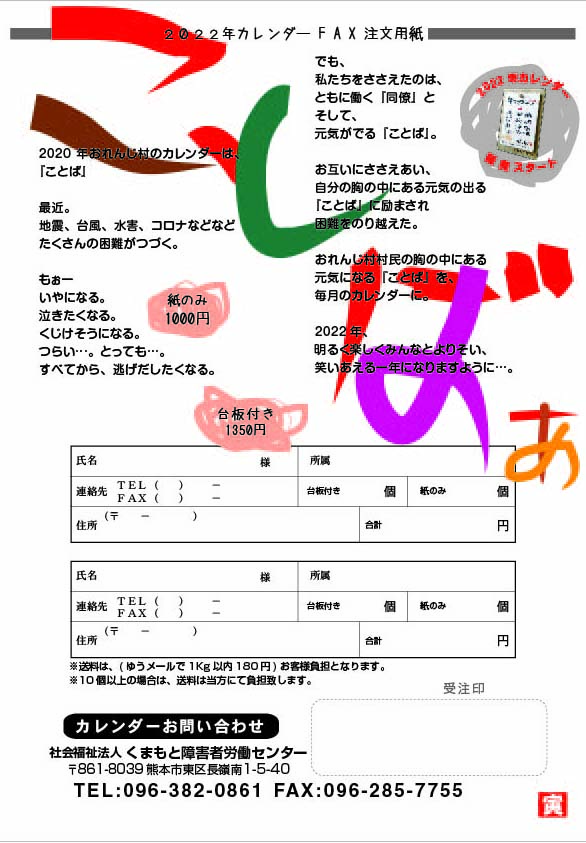 2022年カレンダー FAX 注文用紙
ことばぁ
2020 年おれんじ村のカレンダーは、
『ことば』
最近。
地震、台風、水害、コロナなどなど
たくさんの困難がつづく。
もぉー
いやになる。
泣きたくなる。
くじけそうになる。
つらい…。とっても…。
すべてから、逃げだしたくなる。
でも、
私たちをささえたのは、
ともに働く『同僚』と
そして、
元気がでる『ことば』。
お互いにささえあい、
自分の胸の中にある元気の出る
『ことば』に励まされ
困難をのり越えた。
おれんじ村村民の胸の中にある
元気になる『ことば』を、
毎月のカレンダーに。
2022 年、
明るく楽しくみんなとよりそい、
笑いあえる一年になりますように…。
スタート
紙のみ
1000円
台板付き
1350円
氏名 様 所属
連絡先 TEL ( ) －
FAX ( ) －
台板付き 個 紙のみ 個
住所 (〒 － )
合計 円
氏名 様 所属
連絡先 TEL ( ) －
FAX ( ) －
台板付き 個 紙のみ 個
住所 (〒 － )
合計 円
※送料は、(ゆうメールで 1Kg 以内 180 円) お客様負担となります。
※10 個以上の場合は、送料は当方にて負担致します。
受注印
カレンダーお問い合わせ
社会福祉法人 くまもと障害者労働センター
〒861-8039 熊本市東区長嶺南1-5-40
TEL:096-382-0861 FAX:096-285-7755
寅